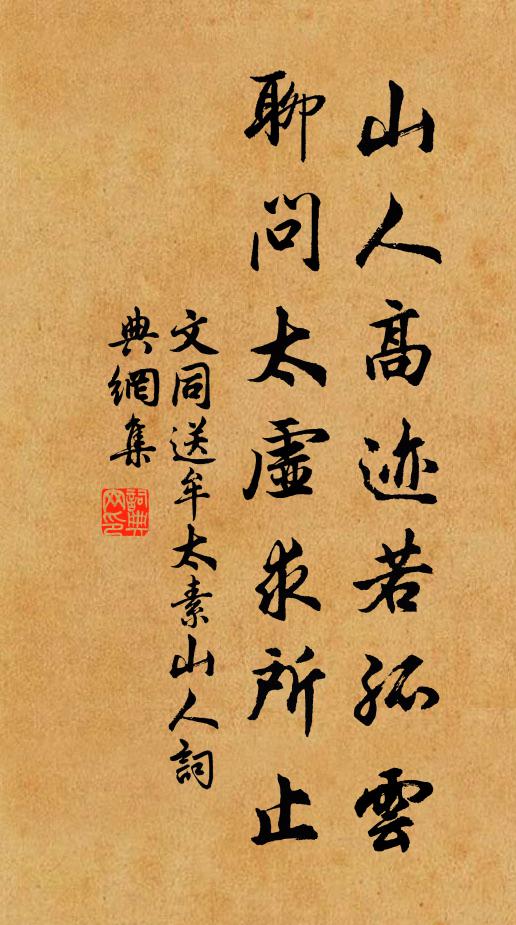 山人高迹若孤雲
聊問太虛求所止
文同送牟太素山人詞
典網集
詞典網印